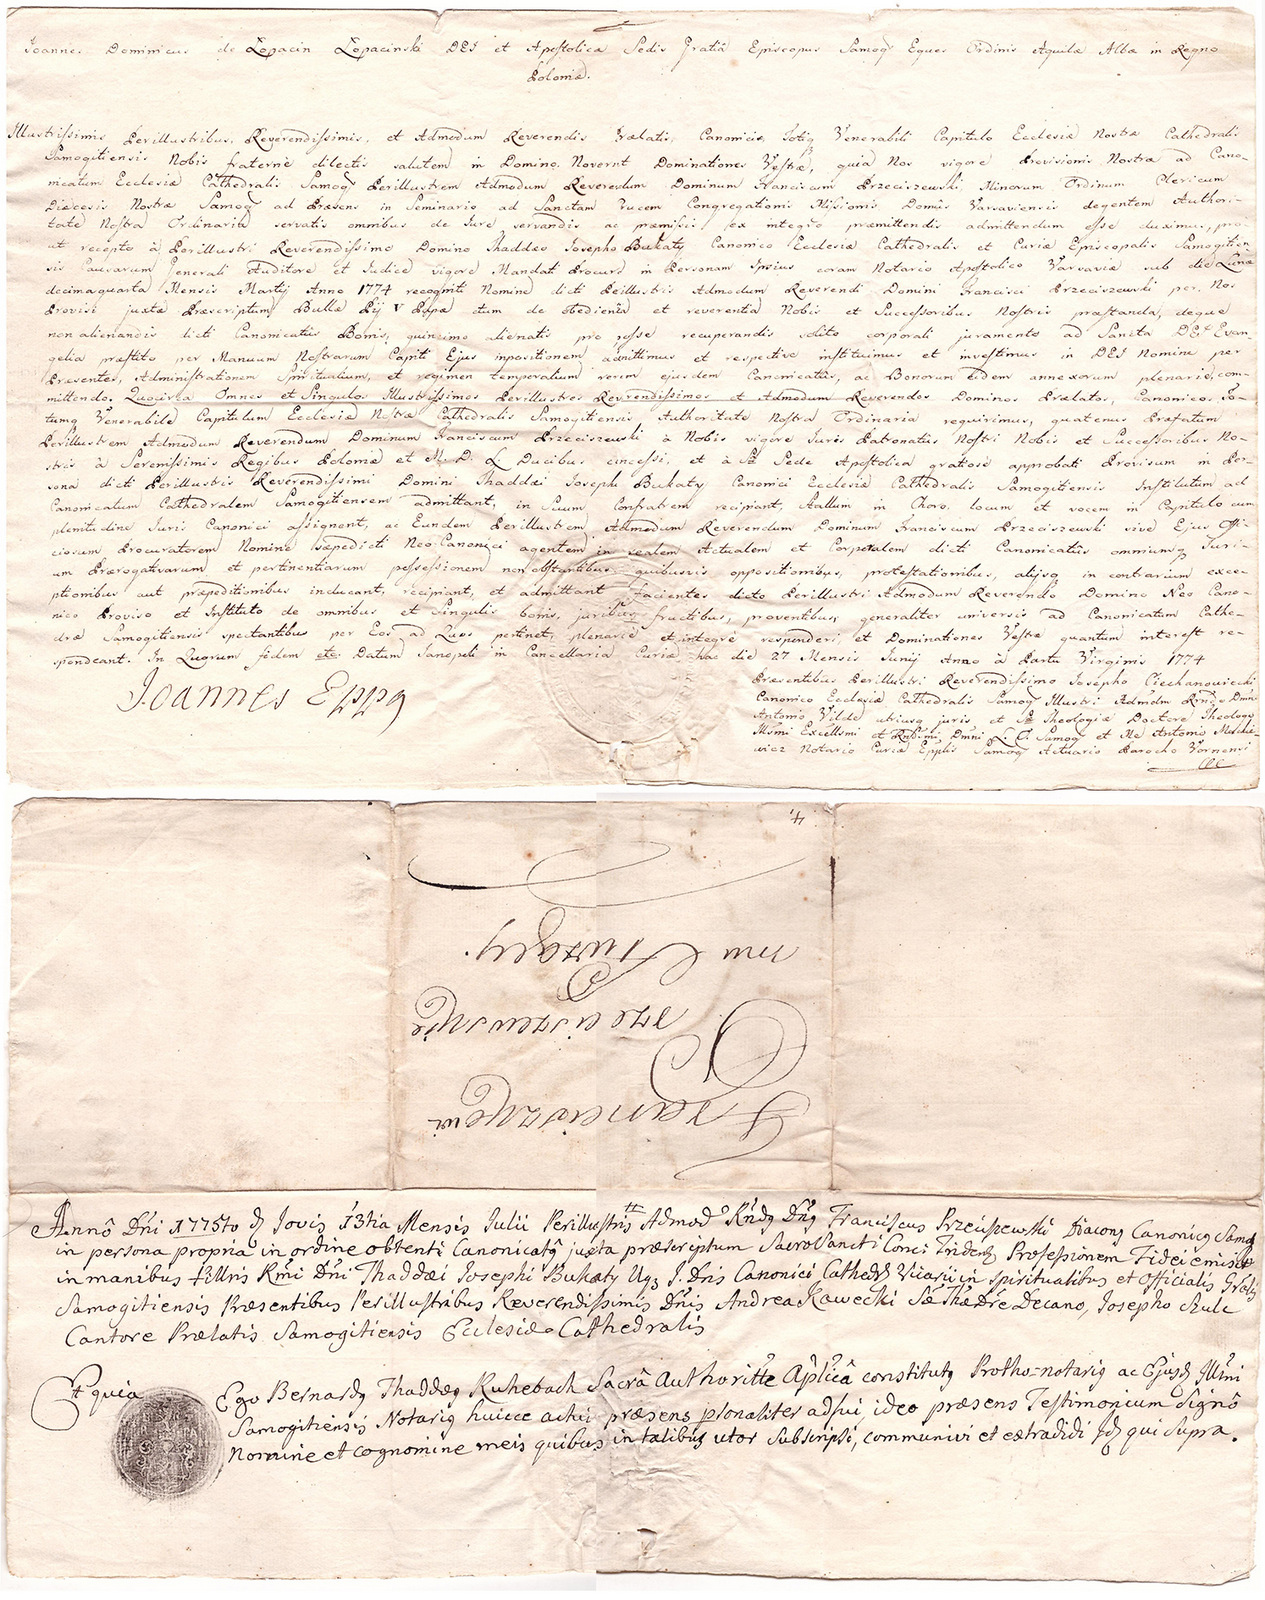 Joannes Dominicus de Łopacin Łopacinski DEI et Apostolica Sedis Gratiâ Episcopus Samog Eques Ordinis Aquilæ Albæ in Regno
Poloniæ.
Illustrissimis Perillustribus, Reverendissimis, et Admodum Reverendis Prælatis, Canonicis, totiq Venerabili Capitulo Ecclesiæ Nostræ Cathedralis
Samogitiensis Nobis fraterne dilectis salutem in Domino. Noverint Dominationes Vestræ, quia Nos vigore Provisionis Nostræ ad Cano-
nicatum Ecclesiæ Cathedralis Samog Perillustrem Admodum Reverendum Dominum Franciscum Przeciszewski Minorum Ordinum Clericum
Diæcesis Nostræ Samog ad Præsens in Seminario ad Sanctam Crucem Congregationis Missionis Domûs Varsaviensis degentem Authori-
tate Nostra Ordinaria servatis omnibus de Jure servandis ac præmissis ex integro præmittendis admittendum esse duximus, pro-
ut recepto à Perillustri Reverendissimo Domino Thaddæo Josepho Bukaty Canonico Ecclesiæ Cathedralis et Curiæ Episcopalis Samogitien-
sis Causarum Generali Auditore et Judice vigore Mandati Procuræ in Personam Ipsius coram Notario Apostolico Varsaviæ sub die Lunæ
decimaquarta Mensis Martij Anno 1774 recogniti Nomine dicti Perillustris Admodum Reverendi Domini Francisci Przeciszewski per Nos
Provisi juxta Præscriptum Bullæ Pij V Papæ tum de obedientiâ et reverentiâ Nobis et Successoribus Nostris præstanda, deque
non alienandis dicti Canonicatûs Bonis, quinimo alienatis pro posse recuperandis solito corporali juramento ad Sancta DEI Evan-
gelia præstito per Manuum Nostrarum Capiti Ejus impositionem admittimus et respective instituimus et investimus in DEI Nomine per
Præsentes, Administrationem Spiritualium, et regimen temporalium rerum ejusdem Canonicatûs, ac Bonorum eidem annexorum plenarie com-
mittendo. Quocirca Omnes et Singulos Illustrissimos Perillustres Reverendissimos et Admodum Reverendos Dominos Prælatos, Canonicos, to-
tumq Venerabile Capitulum Ecclesiæ Nostræ Cathedralis Samogitiensis Authoritate Nostra Ordinaria requirimus, quatenus Præfatum
Perillustrem Admodum Reverendum Dominum Franciscum Przeciszewski à Nobis vigore Juris Patronatûs Nostri Nobis et Successoribus No-
stris à Serenissimis Regibus Poloniæ et M. D. L. Ducibus concessi, et à Sta Sede Apostolica gratiose approbati Provisum in Per-
sona dicti Perillustris Reverendissimi Domini Thaddæi Josephi Bukaty Canonici Ecclesiæ Cathedralis Samogitiensis Institutum ad
Canonicatum Cathedralem Samogitiensem admittant, in Suum Confratrem recipiant, Stallum in Choro, locum et vocem in Capitulo cum
plenitudine Juris Canonici assignent, ac Eundem Perillustrem Admodum Reverendum Dominum Franciscum Przeciszewski sive Ejus Offi-
ciosum Procuratorem Nomine sæpedicti Neo Canonici agentem in realem Actualem et Corporalem dicti Canonicatûs omniumq Juri-
um Prærogativarum et pertinentiarum possessionem non obstantibus quibusvis oppositionibus, protestationibus, alijsq in contrarium exce-
ptionibus aut præpeditionibus inducant, recipiant, et admittant facientes dicto Perillustri Admodum Reverendo Domino Neo Cano-
nico Proviso et Instituto de omnibus et Singulis bonis, juribus, fructibus, proventibus, generaliter universis ad Canonicatum Cathe-
dræ Samogitiensis spectantibus per Eos ad Quos pertinet, plenarie et integre responderi, et Dominationes Vestræ quantum interest re-
spondeant. In Quorum fidem etc. Datum Janopoli in Cancellaria Curiæ hac die 27 Mensis Junij Anno à Partu Virginis 1774
Præsentibus Perillustri Reverendissimo Josepho Ciechanowiecki
Canonico Ecclesiæ Cathedralis Samog Illustri Admdm Rndo Dmno
Antonio Vilde utriusq juris et Sæ Theologiæ Doctore Theologo
Illsmi Excellsmi et Rndsmi Dmni L. O. Samog et Me Antonio
Notario Curiæ Epplis Samog Actuario Parocho Vornensi
Joannes Eppg
4.
Franciszkowi
Przeciszewskie
mu Służący.
Annô Dni 1775to d Jovis 13tia Mensis Julii Perillustris Admod Rndg Dng Franciscus Przeciszewski Diacong Canonicg Samog
in persona propria in ordine obtenti Canonicatg juxta præscriptum SacroSancti Conci: Tridenti Professionem Fidei emisit
in manibus Illris Rmi Dni Thaddæi Josephi Bukaty Ugz J. Dris Canonici Cathed Vicarii in Spiritualibus et Officialis Gralis
Samogitiensis Præsentibus Perillustribus Reverendissimis Dnis Andrea Kawecki Sæ Thæ Dre Decano, Josepho Szulc
Cantore Prælatis Samogitiensis Ecclesiæ Cathedralis
Et quia Ego Bernardg Thaddæg Ruhebach Sacrâ Authoritte Aplicâ constitutg Protho-notarig ac Ejusd Illmi
Samogitiensis Notarig huicce actui præsens psonaliter adfui, ideo præsens Testimonium Signô
Nomine et cognomine meis quibus in talibus utor Subscripsi, communivi et extradidi Jd qui supra.